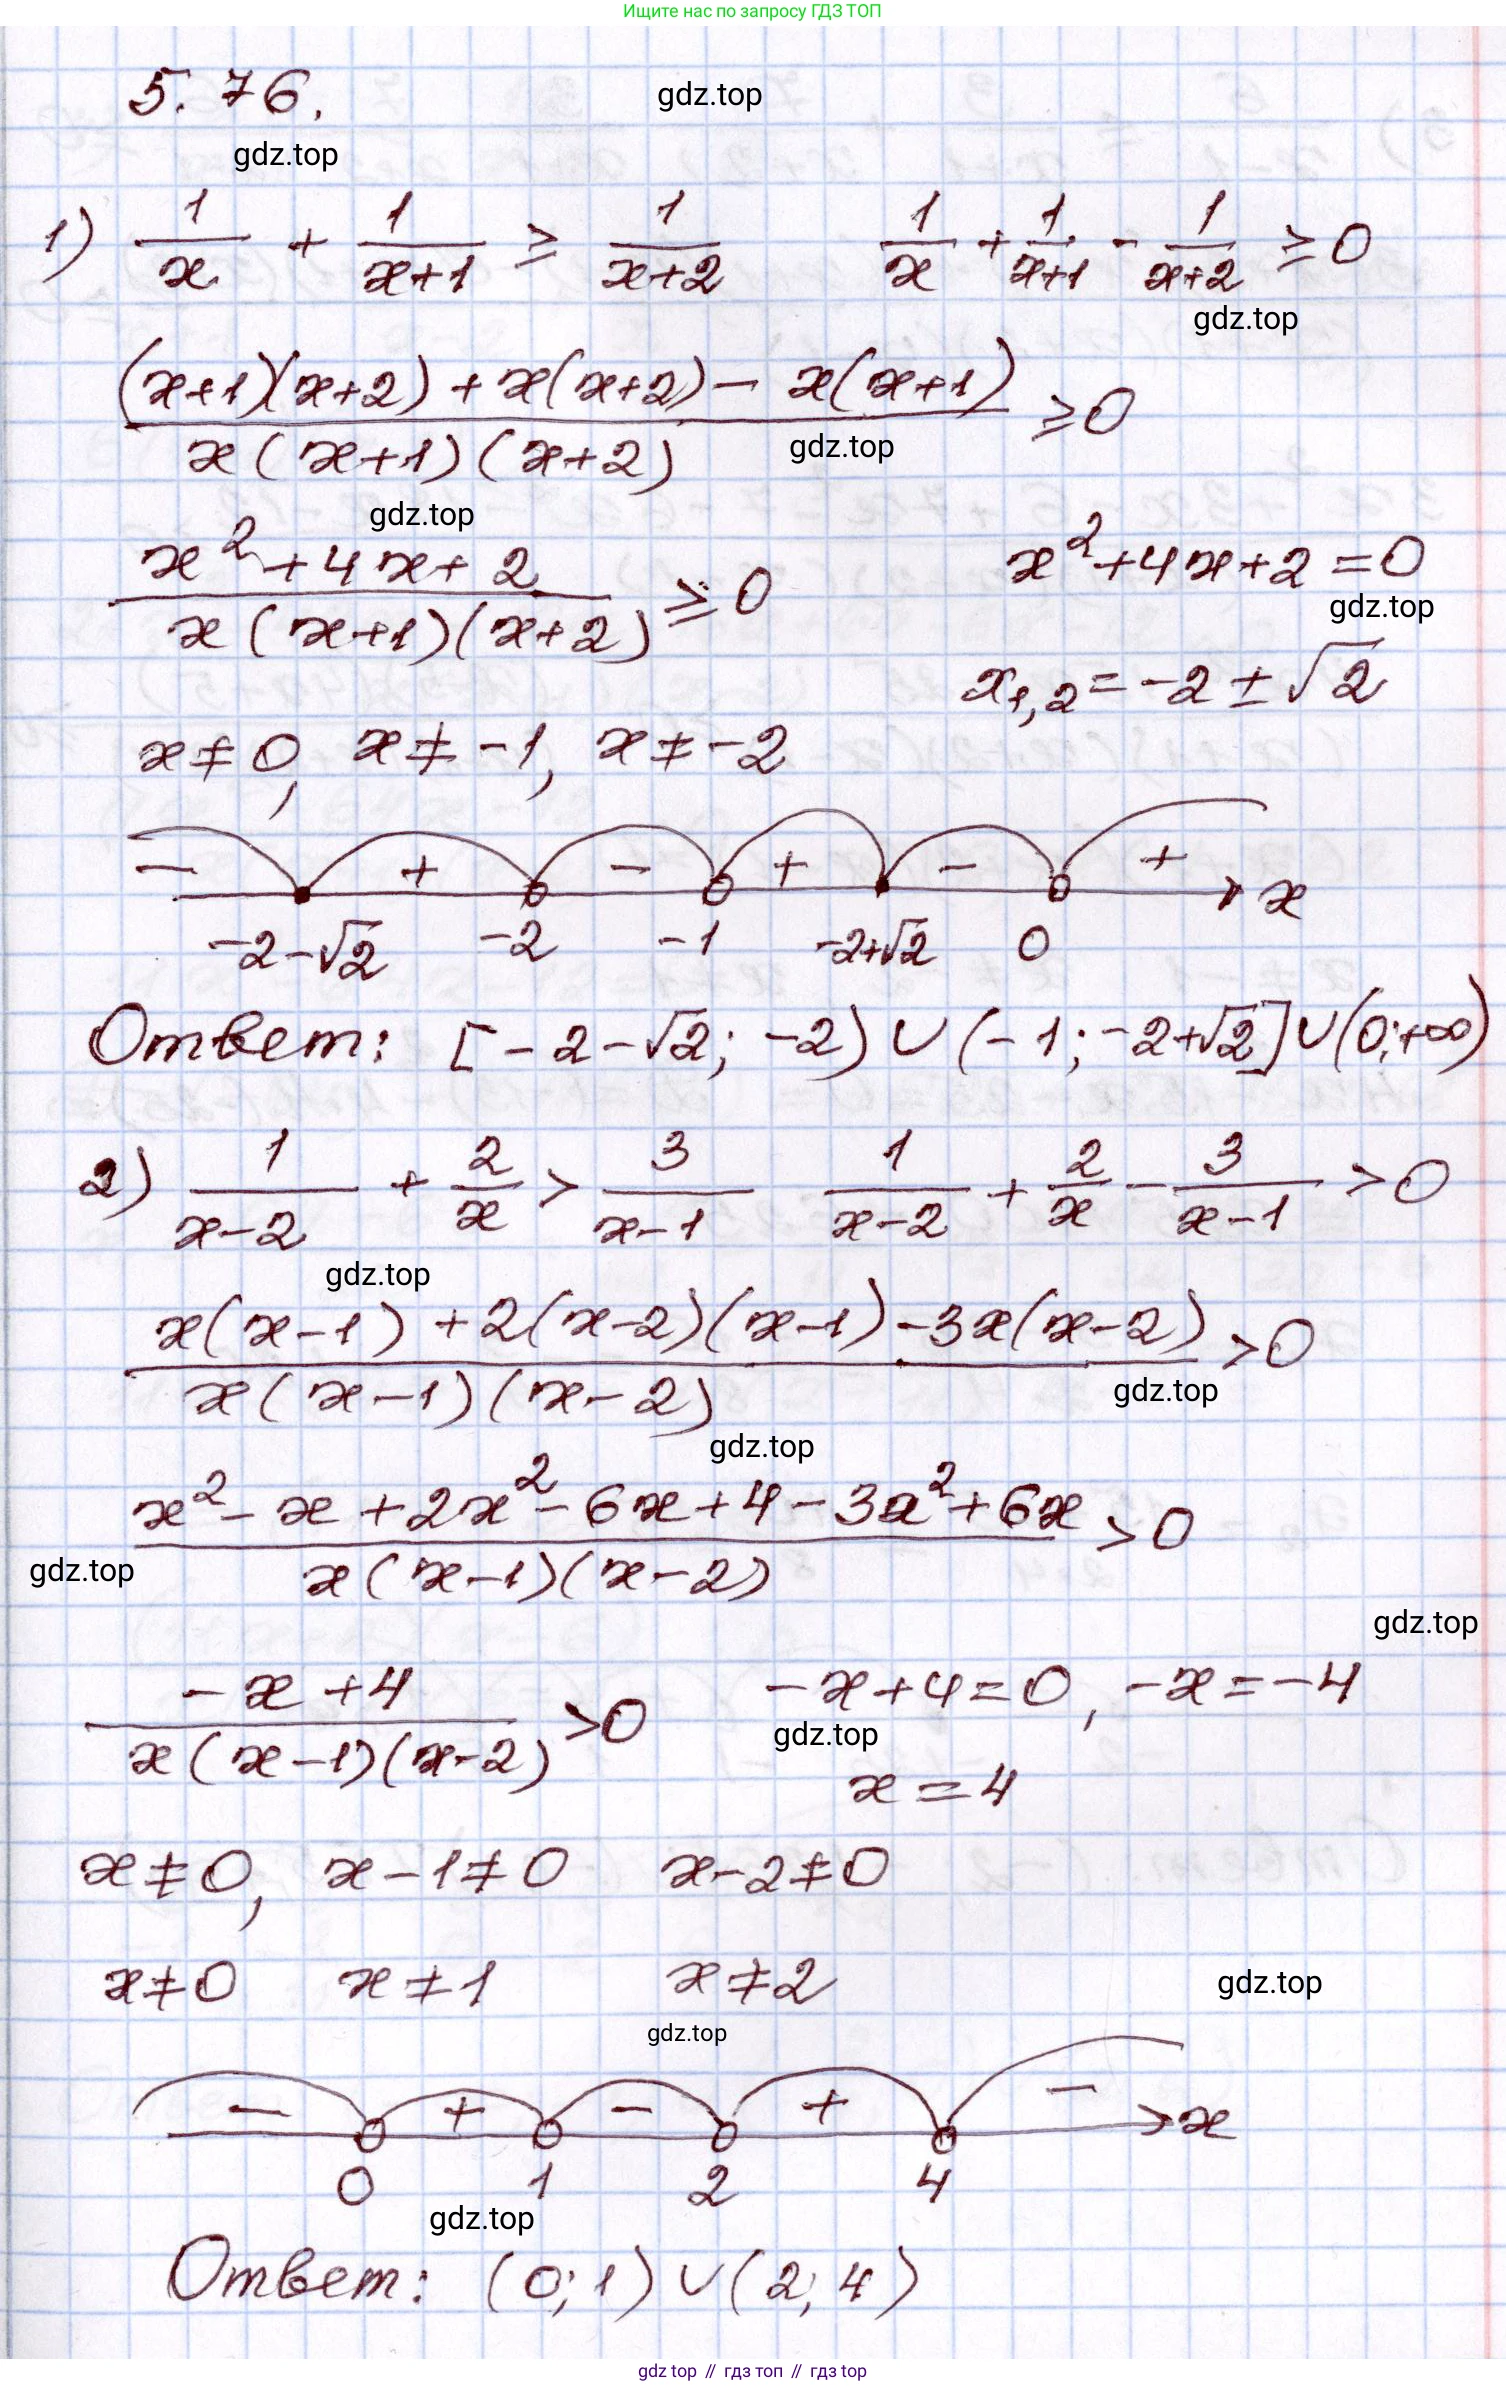 Ищите нас по запросу ГДЗ ТОП
5.76.
gdz.top
gdz.top
1) 1/x + 1/(x+1) ≥ 1/(x+2)   1/x + 1/(x+1) - 1/(x+2) ≥ 0
gdz.top
((x+1)(x+2) + x(x+2) - x(x+1))/(x(x+1)(x+2)) ≥ 0
gdz.top
gdz.top
(x² + 4x + 2)/(x(x+1)(x+2)) ≥ 0   x² + 4x + 2 = 0
gdz.top
x₁,₂ = -2 ± √2
x ≠ 0, x ≠ -1, x ≠ -2
- + - + - + x
-2-√2 -2 -1 -2+√2 0
Ответ: [-2-√2; -2) ∪ (-1; -2+√2] ∪ (0; +∞)
2) 1/(x-2) + 2/x > 3/(x-1)   1/(x-2) + 2/x - 3/(x-1) > 0
gdz.top
(x(x-1) + 2(x-2)(x-1) - 3x(x-2))/(x(x-1)(x-2)) > 0
gdz.top
gdz.top
(x² - x + 2x² - 6x + 4 - 3x² + 6x)/(x(x-1)(x-2)) > 0
gdz.top
gdz.top
(-x + 4)/(x(x-1)(x-2)) > 0   -x + 4 = 0, -x = -4
gdz.top
x = 4
x ≠ 0, x - 1 ≠ 0 x - 2 ≠ 0
x ≠ 0 x ≠ 1 x ≠ 2
gdz.top
gdz.top
- + - + - x
0 1 2 4
gdz.top
Ответ: (0; 1) ∪ (2; 4)
gdz top // гдз топ // гдз top